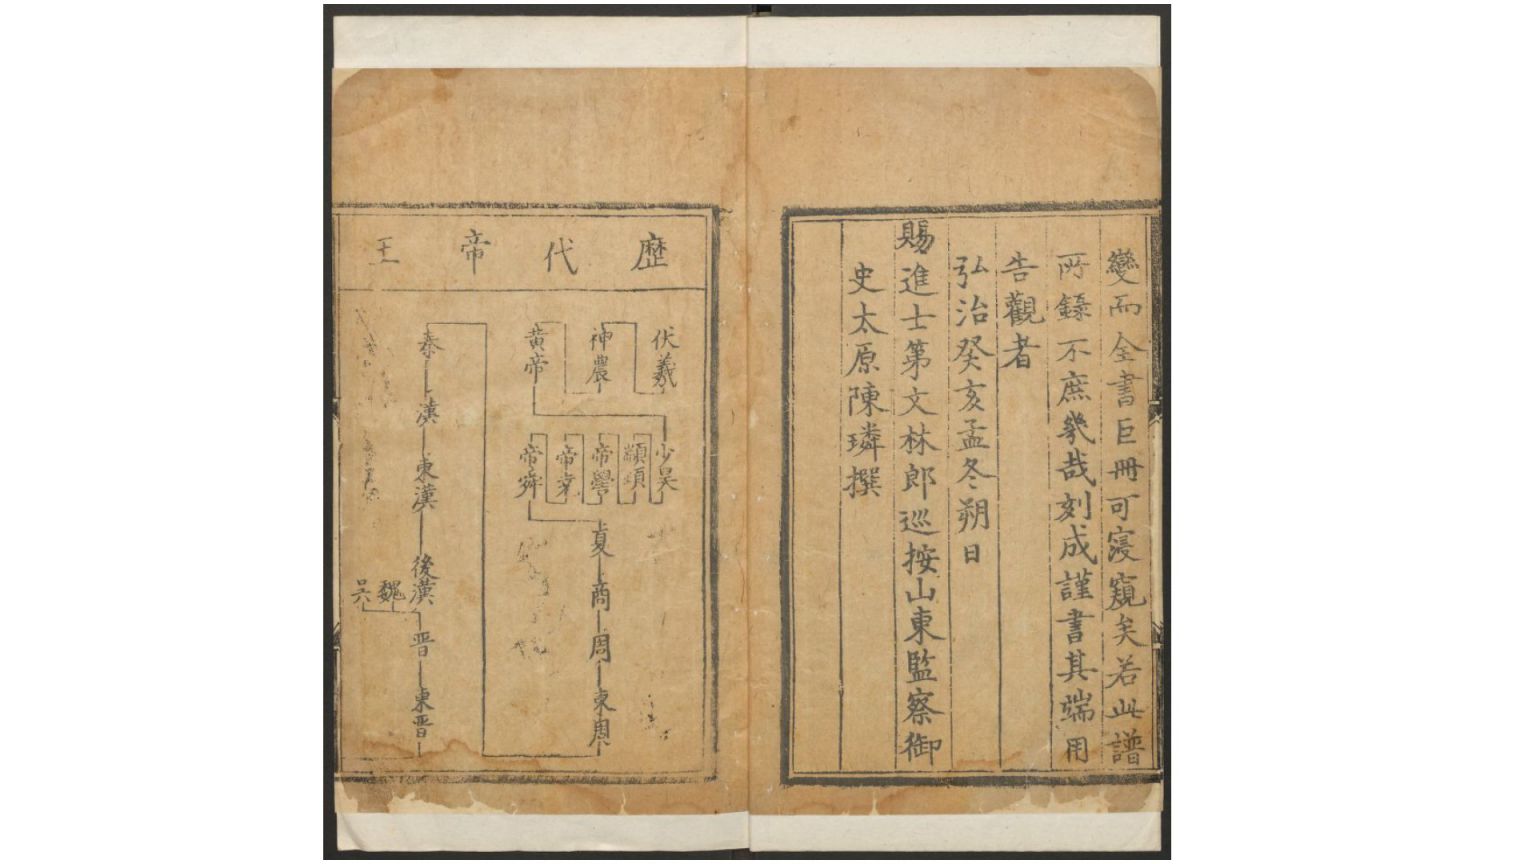 變而全書巨冊可寖窺矣若此譜
所錄不庶幾哉刻成謹書其端用
告觀者
弘治癸亥孟冬朔日
賜進士第文林郎巡按山東監察御
史太原陳璘撰
歷代帝王
伏羲
神農
黄帝
少昊
顓頊
帝嚳
帝堯
帝舜
夏
商
周
東周
秦
漢
東漢
後漢
魏
吳
晋
東晋